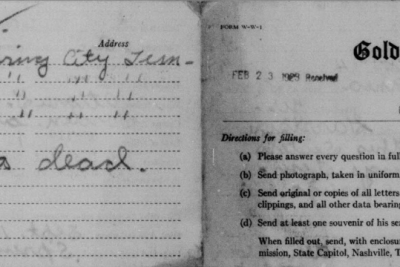 Address
City Tem-
" " "
" " "
dead.
FORM W-W-1
Gold
FEB 23 1923 Received
Directions for filling:
(a) Please answer every question in full
(b) Send photograph, taken in uniform
(c) Send original or copies of all letters
clippings, and all other data bearing
(d) Send at least one souvenir of his se
When filled out, send, with enclosu
mission, State Capitol, Nashville, T